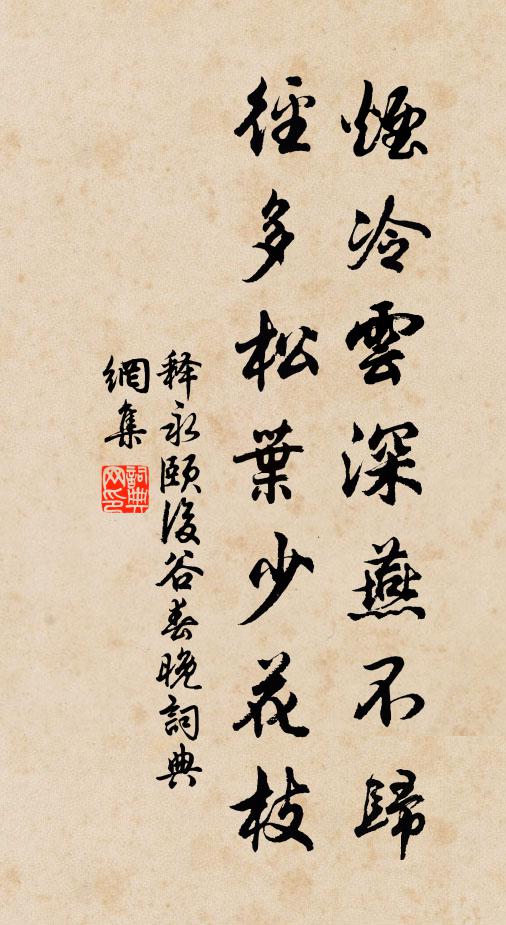 煙冷雲深燕不歸
徑多松葉少花枝
释永頤後谷春晚詞典
網集
詞典網印